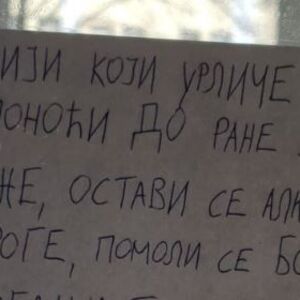 ИЈИ КОЈИ УРЛИЧЕ
ПОНОЋИ ДО РАНЕ
ЖЕ, ОСТАВИ СЕ АЛК
РОГЕ, ПОМОЛИ СЕ БО